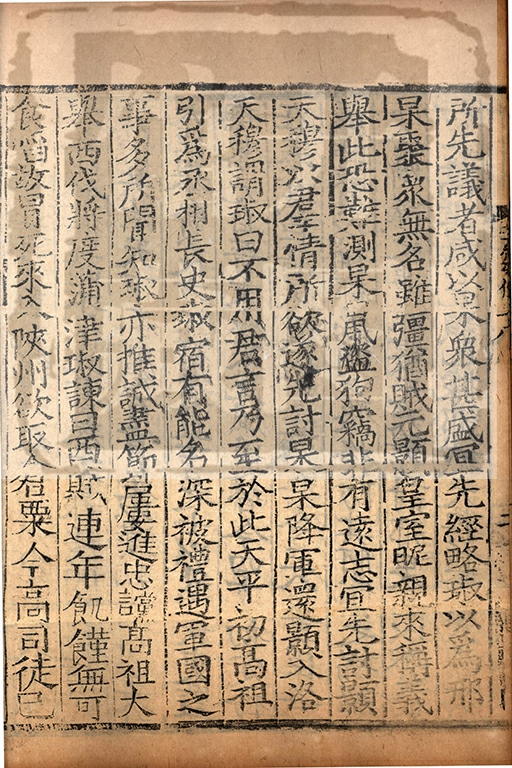 所先議者咸以杲衆甚盛宜先經略琡以爲邢
杲聚衆無名雖彊猶賊元顥皇室昵親來稱義
舉此恐難測杲鼠盜狗竊非有遠志宜先討顥
天穆以羣情所欲遂先討杲杲降軍還顥入洛
天穆謂琡曰不用君言乃至於此天平初高祖
引爲丞相長史琡宿有能名深被禮遇軍國之
事多所聞知琡亦推誠盡節屢進忠讜高祖大
舉西伐將度蒲津琡諫曰西賊連年飢饉無可
食啗故冒死來入陜州欲取倉粟今高司徒已